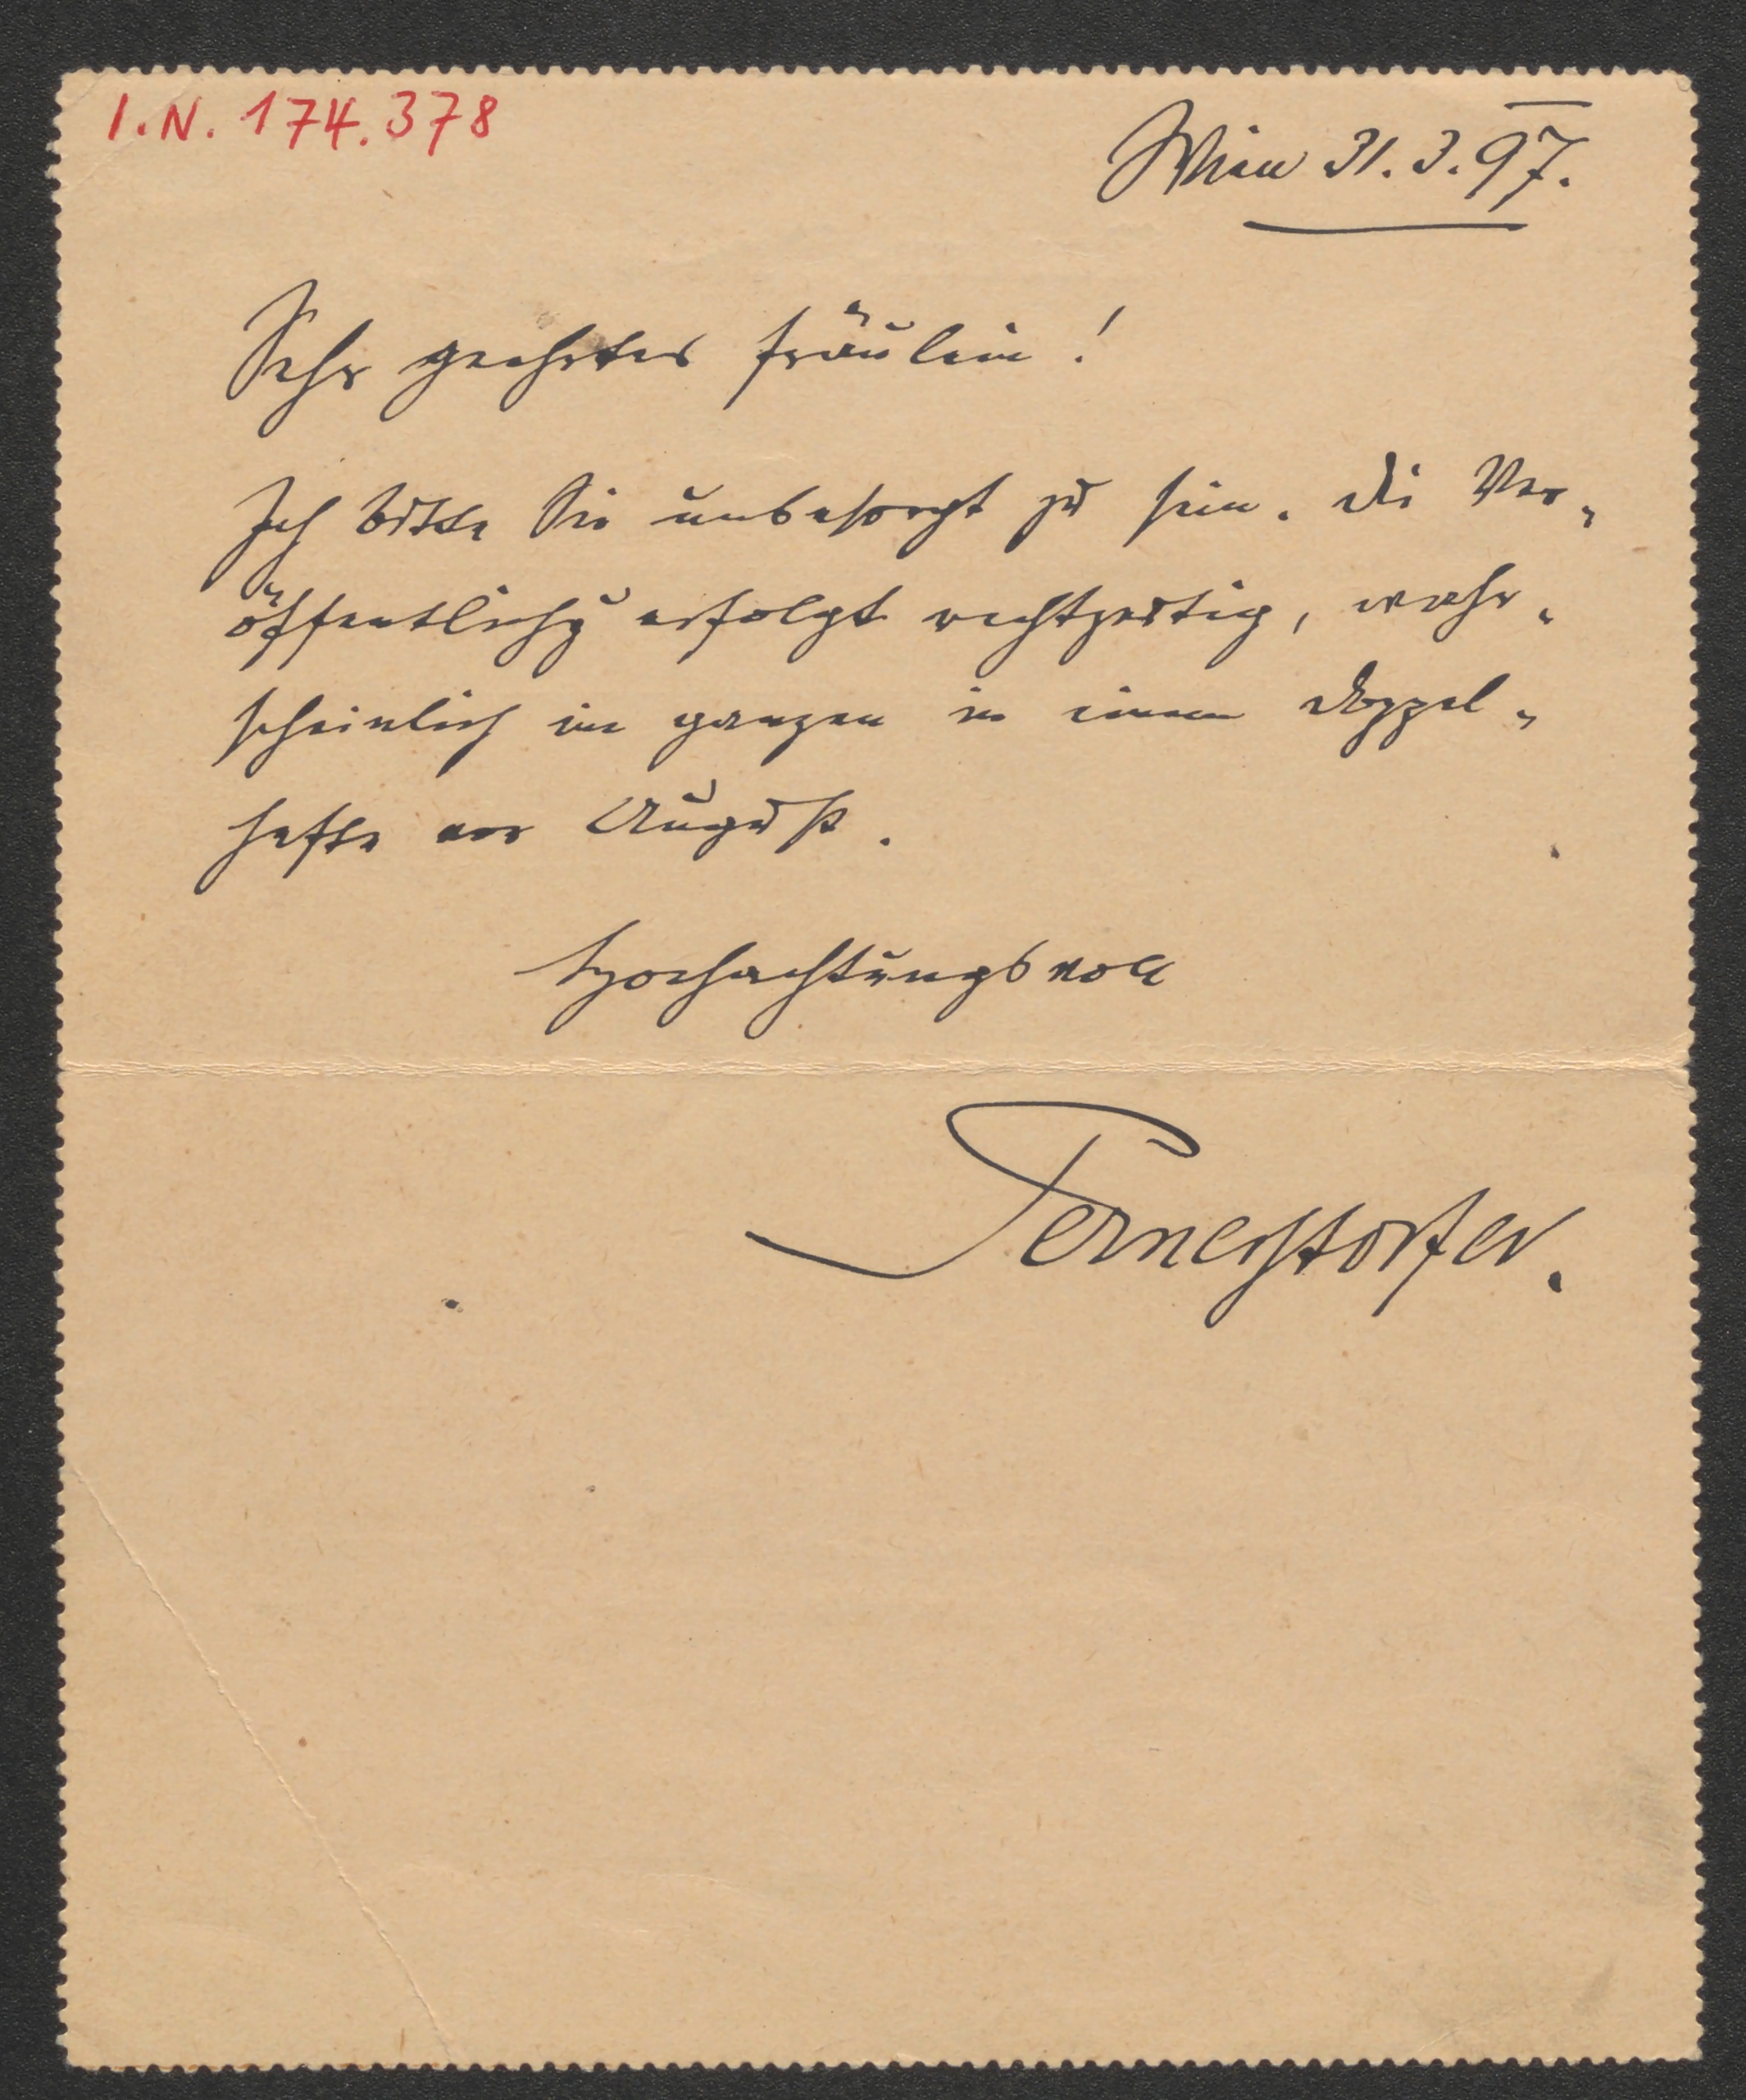 I.N. 174.378
Wien 31.3.97.
Sehr geehrtes Fräulein!
Ich bitte Sie unbesorgt zu sein. Die Ver-
öffentlichg erfolgt rechtzeitig, wahr-
scheinlich im ganzen in einem Doppel-
hefte vor August.
Hochachtungsvoll
Pernerstorfer.